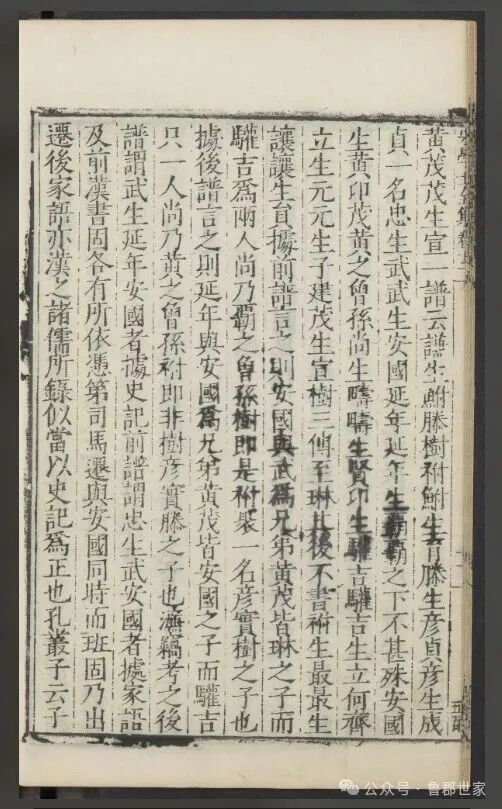 黃茂茂生宣一譜云謙生鮒騰樹祔鮒生育騰生彥貞彥生成
貞一名忠生武武生安國延年延年生霸霸之下不甚殊安國
生黃卬茂黃之曾孫尚生疇疇生賢卬生驩吉驩吉生立何齊
立生元元生子建茂生宣樹三傳至琳其後不書祔生最最生
讓讓生育據前譜言之則安國與武爲兄弟黃茂皆琳之子而
驩吉爲兩人尚乃霸之曾孫樹即是祔裴一名彥實樹之子也
據後譜言之則延年與安國爲兄弟黃茂皆安國之子而驩吉
只一人尚乃黃之曾孫祔即非樹彥實騰之子也竊考之後
譜謂武生延年安國者據史記前譜謂忠生武安國者據家語
及前漢書固各有所依憑第司馬遷與安國同時而班固乃出
遷後家語亦漢之諸儒所錄似當以史記爲正也孔叢子云子
公众号 · 鲁郡世家